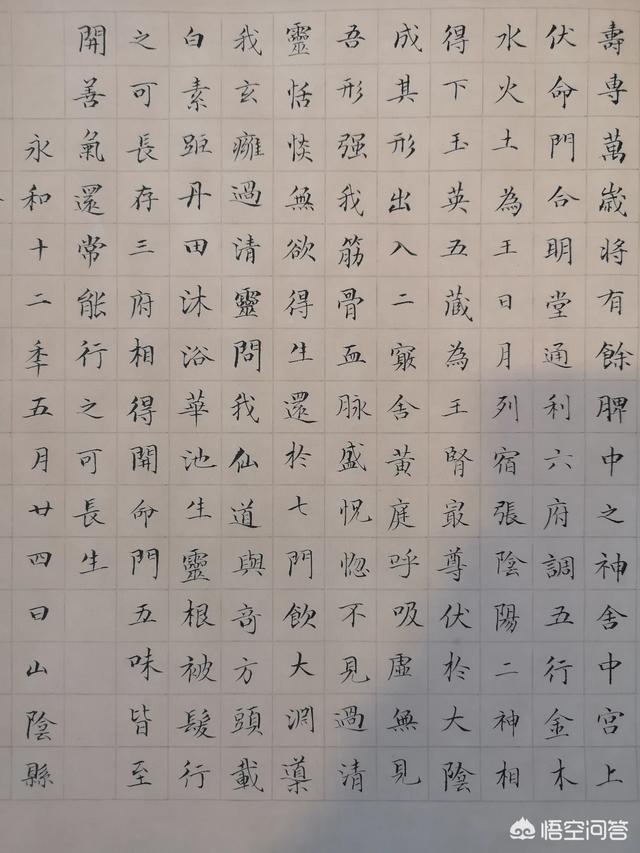 壽專萬歲將有餘脾中之神舍中宮上
伏命門合明堂通利六府調五行金木
水火土為王日月列宿張陰陽二神相
得下玉英五藏為王腎㝡尊伏於大陰
成其形出入二竅舍黃庭呼吸虛無見
吾形强我筋骨血脉盛怳惚不見過清
靈恬惔無欲得生還於七門飲大淵導
我玄癰過清靈問我仙道與奇方頭載
白素距丹田沐浴華池生靈根被髮行
之可長存三府相得開命門五味皆至
開善氣還常能行之可長生
永和十二秊五月廿四日山陰縣
悟空问答